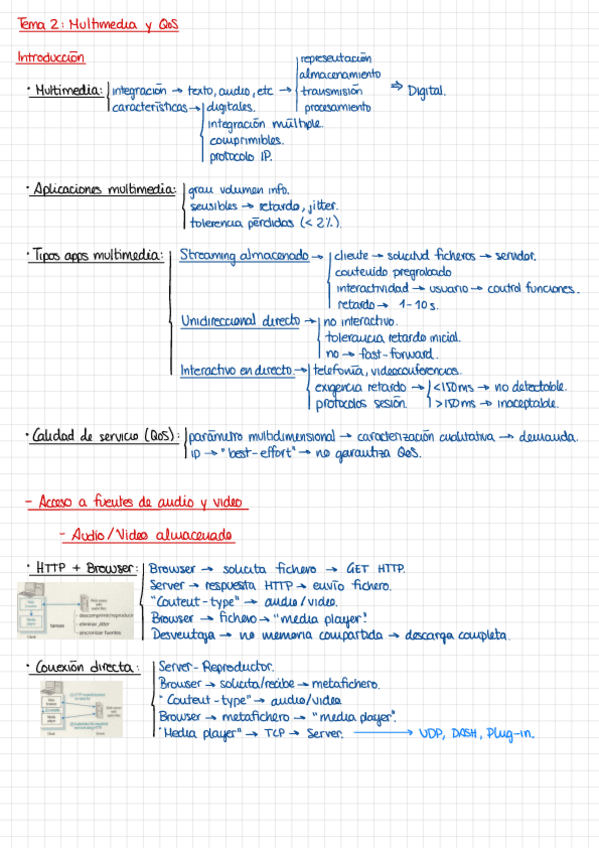 Tema 2: Multimedia y QoS
Introducción
· Multimedia: integración → texto, audio, etc → representación
almacenamiento
transmisión ⇒ Digital.
procesamiento
características → digitales.
integración múltiple.
comprimibles.
protocolo IP.
· Aplicaciones multimedia: gran volumen info.
sensibles → retardo, jitter.
tolerencia pérdidas (< 2%).
· Tipos apps multimedia: Streaming almacenado → cliente → solicitud ficheros → servidor.
contenido pregrabado
interactividad → usuario → control funciones.
retardo → 1-10s.
Unidireccional directo → no interactivo.
tolerancia retardo inicial.
no → fast-forward.
Interactivo en directo → telefonía, videoconferencias.
exigencia retardo → <150ms → no detectable.
protocolos sesión. >150ms → inaceptable.
· Calidad de servicio (QoS): parámetro multidimensional → caracterización cualitativa → demanda.
IP → "best-effort" → no garantiza QoS.
- Acceso a fuentes de audio y video
- Audio/Video almacenado
· HTTP + Browser: Browser → solicita fichero → GET HTTP.
Server → respuesta HTTP → envío fichero.
"Content-type" → audio/video.
Browser → fichero → "media player".
Desventaja → no memoria compartida → descarga completa.
tareas
- descomprimir/reproducir
- eliminar jitter
- sincronizar fuentes
· Conexión directa: Server-Reproductor.
Browser → solicita/recibe → metafichero.
"Content-type" → audio/video
Browser → metafichero → "media player".
"Media player" → TCP → Server. → UDP, DASH, Plug-in.